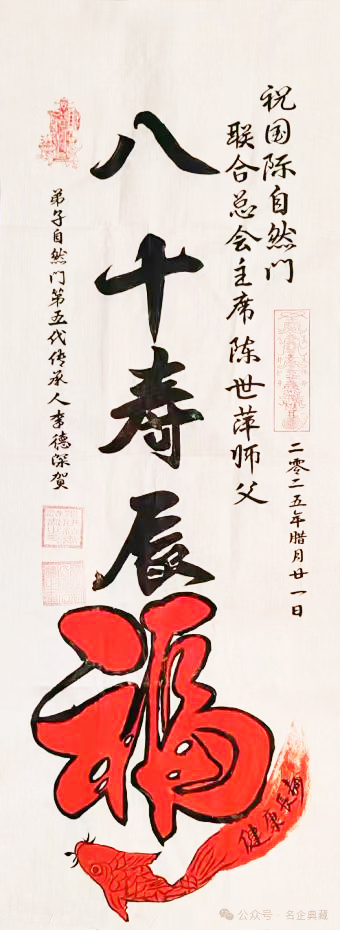 祝国际自然门
联合总会主席陈世萍师父
二零二五年腊月廿一日
八十寿辰
福
健康长寿
弟子自然门第五代传承人李德深贺
公众号·名企典藏